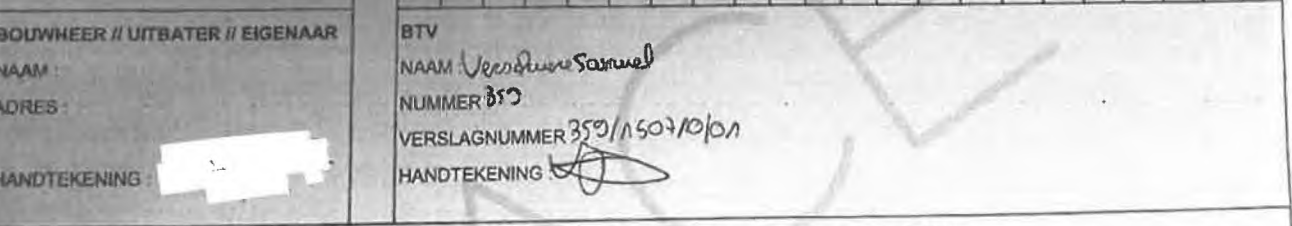 BOUWHEER // UITBATER // EIGENAAR
NAAM :
ADRES :
HANDTEKENING :
BTV
NAAM : Verschuere Samuel
NUMMER 359
VERSLAGNUMMER 359/150710/01
HANDTEKENING :